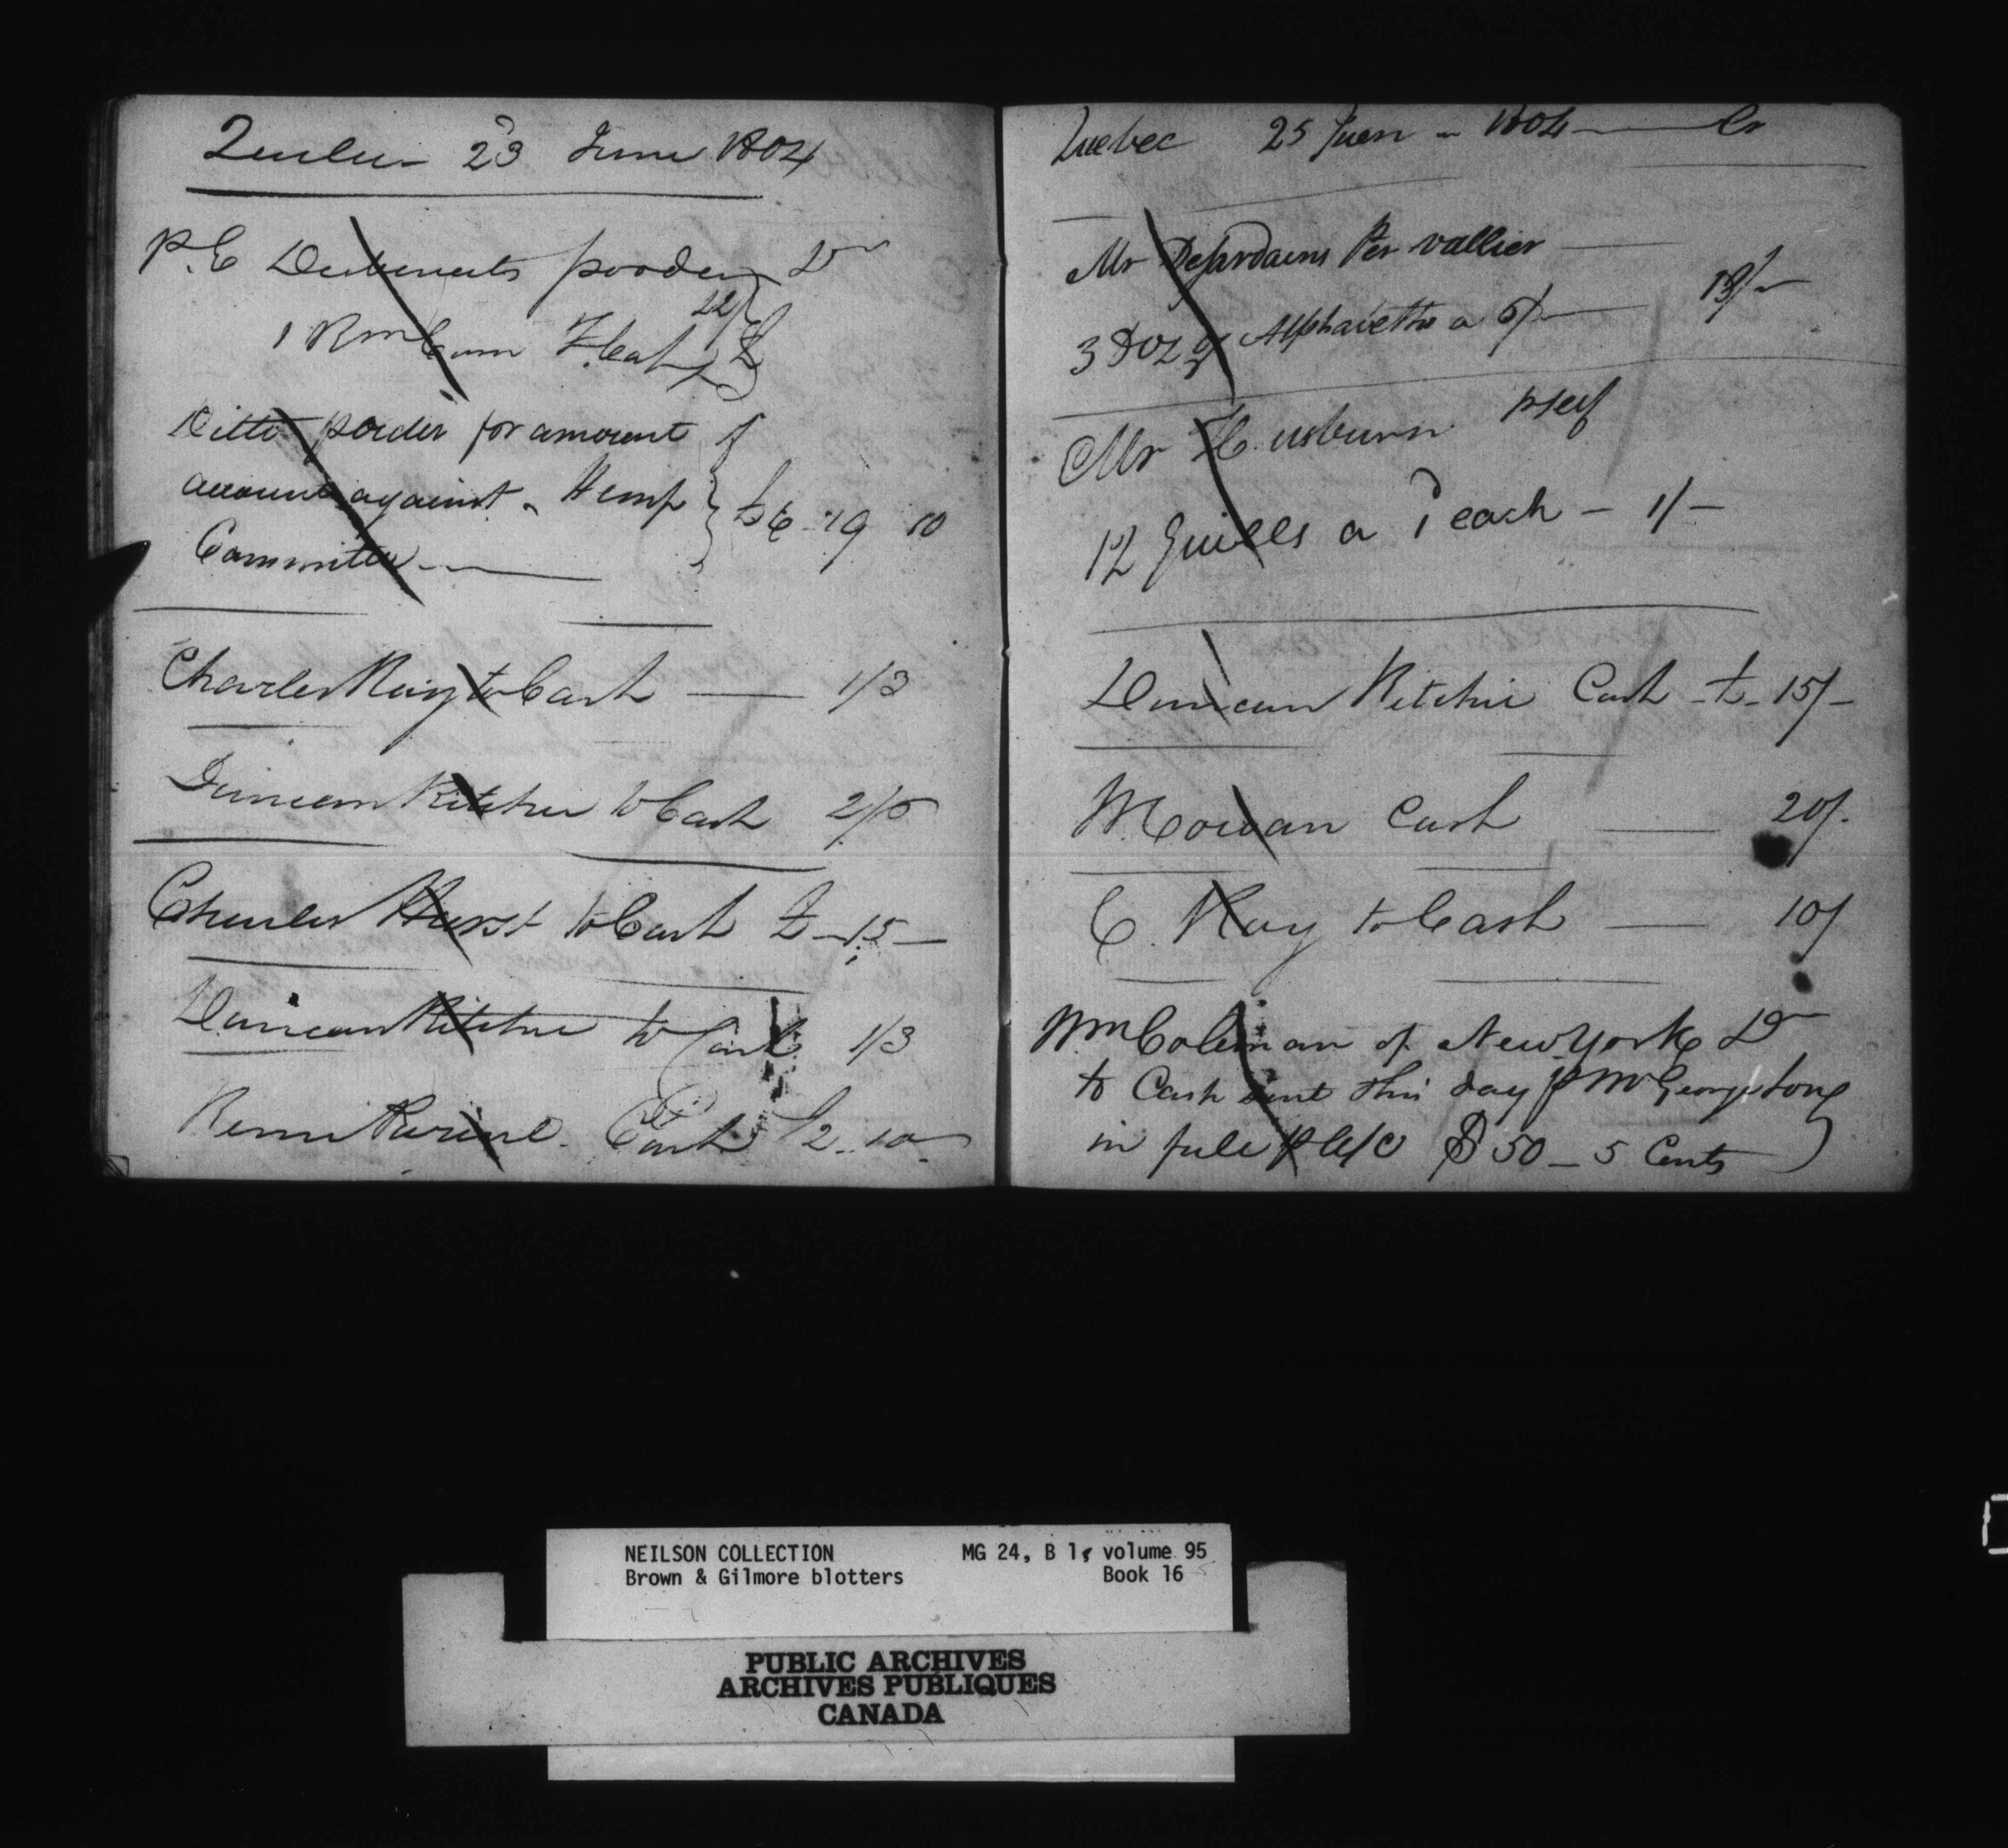 Quebec 23 June 1804
P. E Desbarats p order Dr
1 Rm Com
22/6
Ditto p order for amount of
account against Hemp
Committee £6 19 10
Charles Roy to Cash 1/3
Duncan Ritchie to Cash 2/6
Charles Hurst to Cash £ - 15 -
Duncan Ritchie to Cash 1/3
Cash £2 - 10 -
Quebec 25 Juen - 1804 Cr
Mr Desjardains Per vallier
3 Doz of Alphabetts a 6/ 18/-
Mr pself
12 Quills a 1 each - 1/-
Duncan Ritchie Cash - £ - 15/-
W Cowan Cash 20/-
C. Roy to Cash 10/
Wm Coleman of New York Dr
to Cash sent this day p Mr George Long
in full p a/c $ 50 - 5 Cents
NEILSON COLLECTION MG 24, B 1, volume 95
Brown & Gilmore blotters Book 16
PUBLIC ARCHIVES
ARCHIVES PUBLIQUES
CANADA